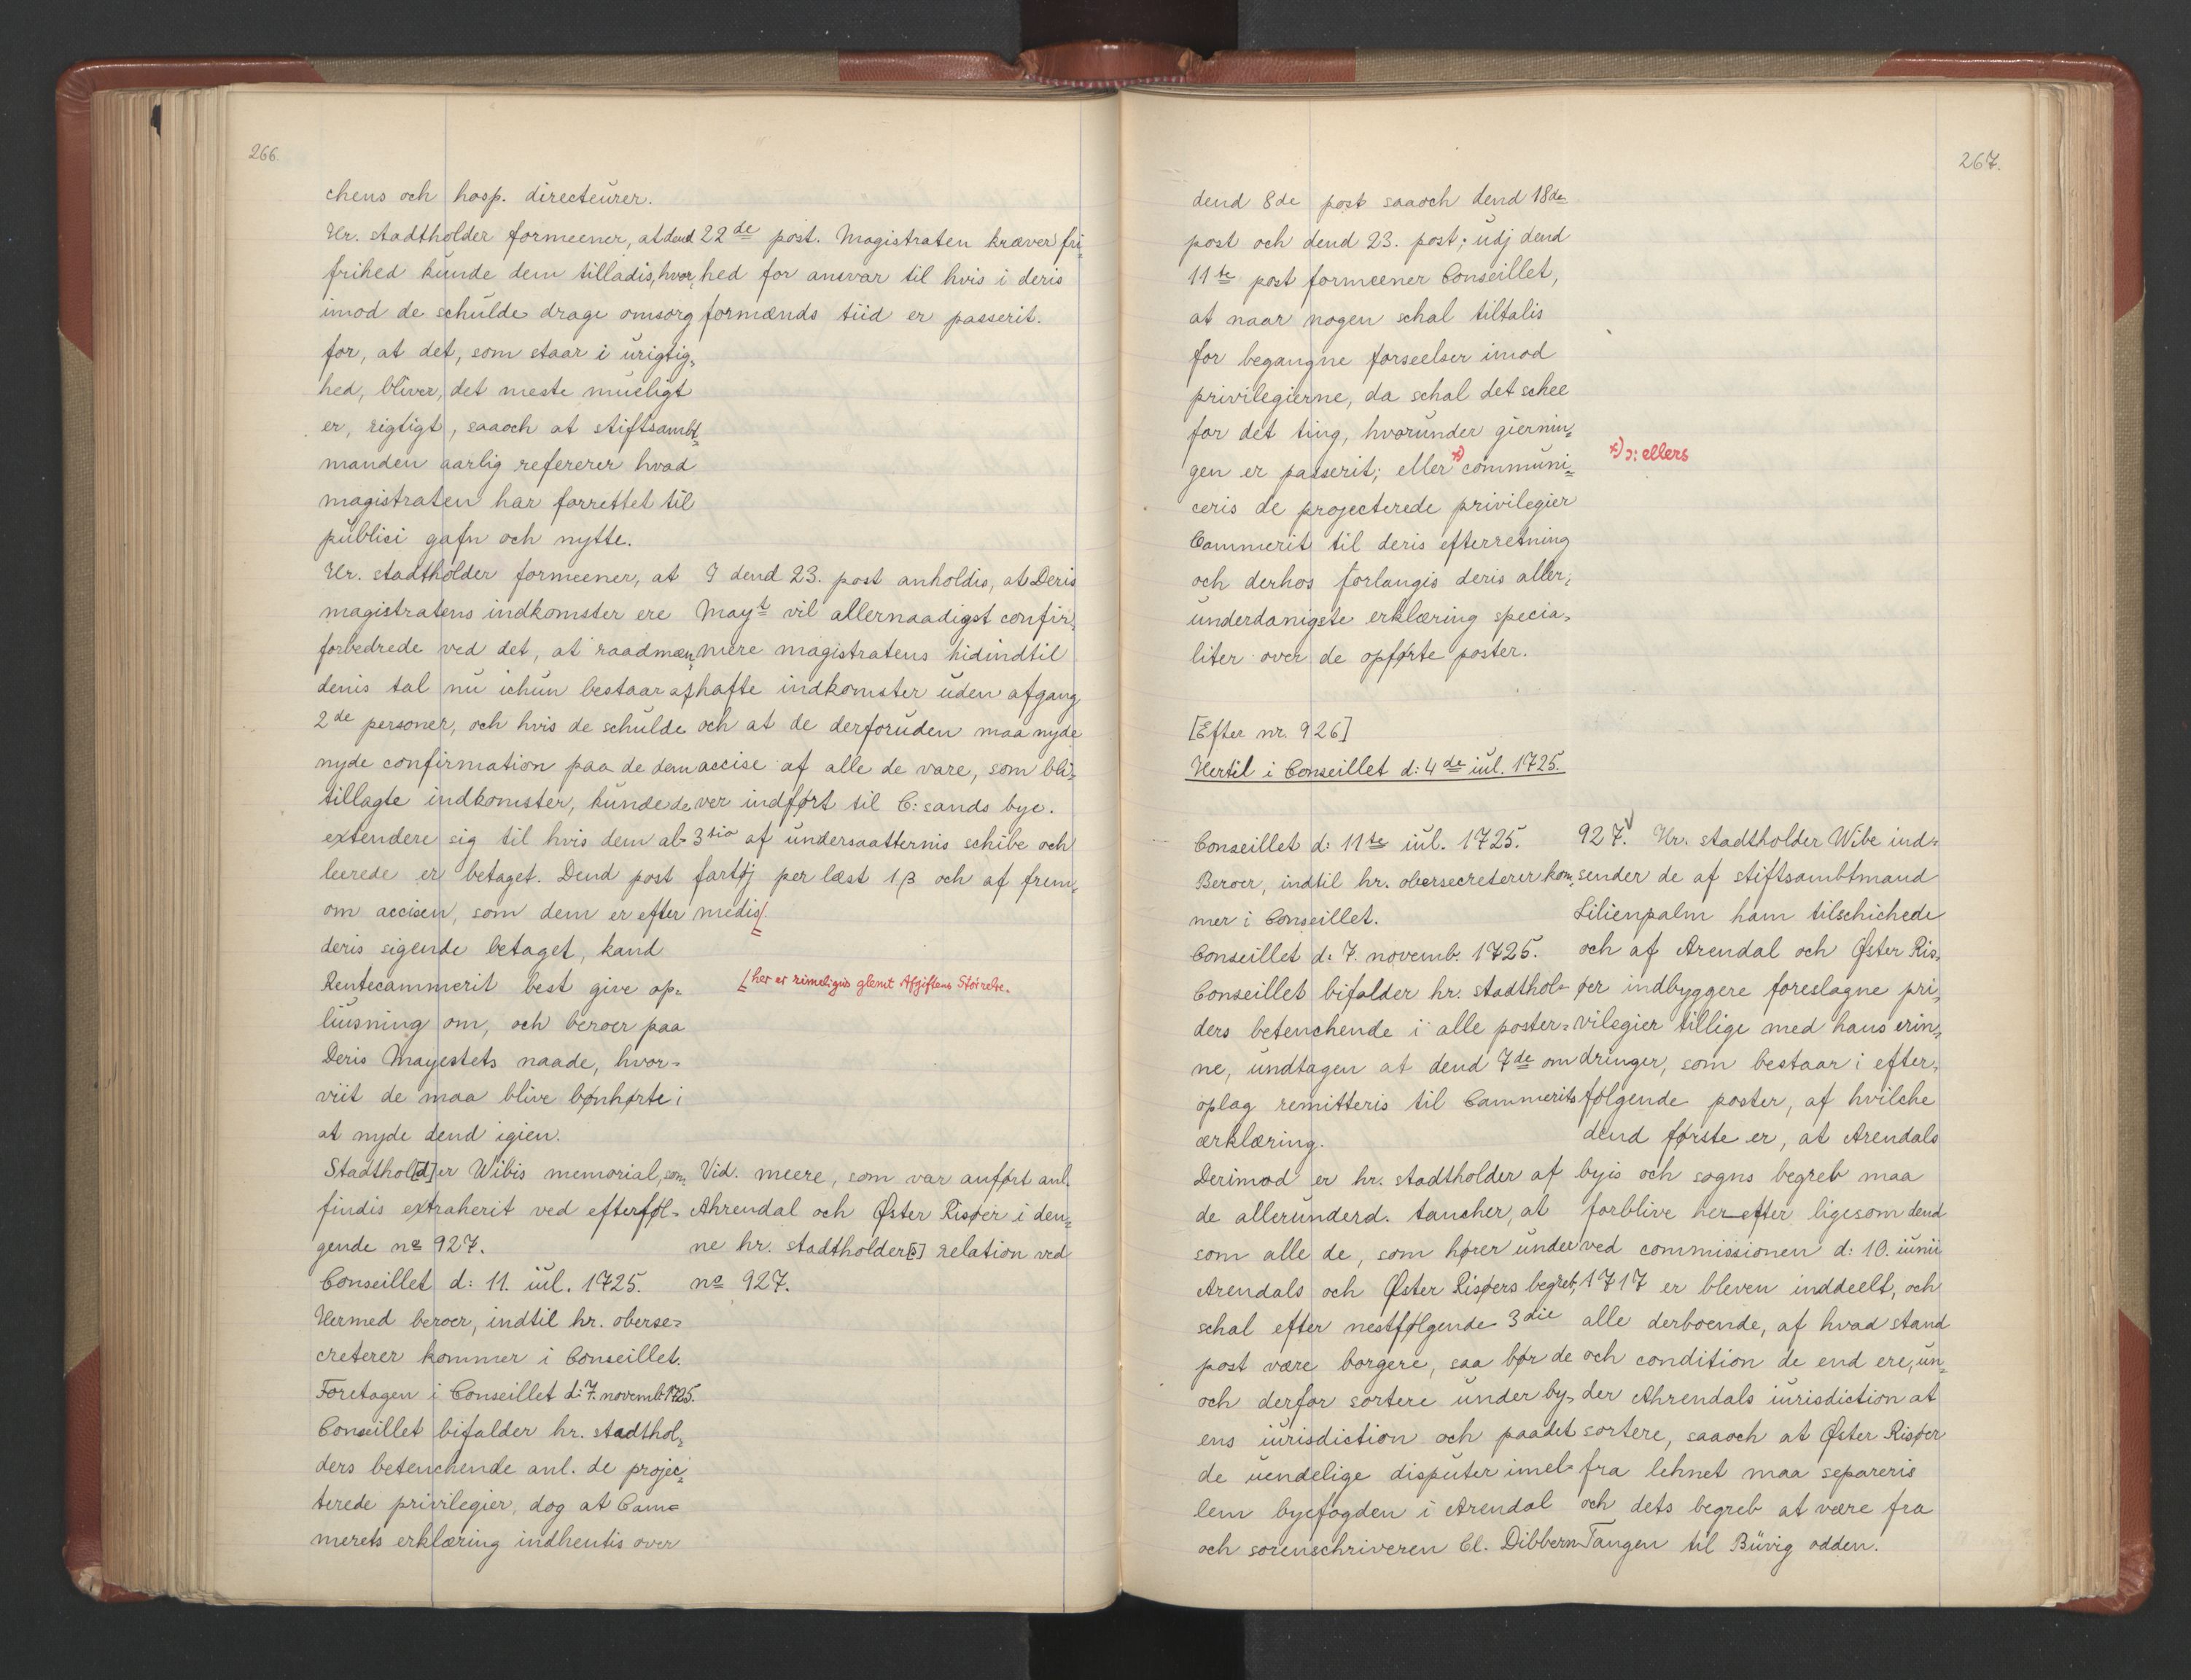 266.
chens och hosp. directeurer.
Hr. stadtholder formeener, at dend
frihed kunde dem tilladis, hvor-
imod de schulde drage omsorg
for, at det, som staar i urigtig-
hed, bliver, det meste mueligt
er, rigtigt, saaoch at stiftsambt-
manden aarlig refererer hvad
magistraten har forrettet til
publici gafn och nytte.
22de post. Magistraten kræver fri-
hed for ansvar til hvis i deris
formænds tiid er passerit.
Hr. stadtholder formeener, at
magistratens indkomster ere
forbedrede ved det, at raadmæn-
denis tal nu ichun bestaar af
2de personer, och hvis de schulde
nyde confirmation paa de dem
tillagte indkomster, kunde de
extendere sig til hvis dem al-
leerede er betaget. Dend post
om accisen, som dem er efter
deris sigende betaget, kand
Rentecammerit best give op-
liusning om, och beroer paa
Deris Mayestets naade, hvor-
viit de maa blive bønhørte i
at nyde dend igien.
I dend 23. post anholdis, at Deris
Mayt vil allernaadigst confir-
mere magistratens hidindtil
hafte indkomster uden afgang
och at de derforuden maa nyde
accise af alle de vare, som bli-
ver indført til C: sands bye.
3tio af undersaatternis schibe och
fartøj per læst 1 β och af frem-
medis/.
/ her er rimeligvis glemt Afgiftens Størrelse.
Stadthol[d]er Wibis memorial, som
findis extraherit ved efterføl-
gende no 927.
Conseillet d: 11. iul. 1725.
Hermed beroer, indtil hr. oberse-
creterer kommer i Conseillet.
Foretagen i Conseillet d: 7. novemb. 1725.
Conseillet bifalder hr. stadthol-
ders betenchende anl. de projec-
terede privilegier, dog at Cam-
merets erklæring indhentis over
Vid. meere, som var anført anl.
Ahrendal och Øster Risøer i den-
ne hr. stadtholder[s] relation ved
no 927.
267.
dend 8de post saaoch dend 18de
post och dend 23. post; udj dend
11te post formeener Conseillet,
at naar nogen schal tiltalis
for begangne forseelser imod
privilegierne, da schal det schee
for det ting, hvorunder giernin-
gen er passerit; eller *) communi-
ceris de projecterede privilegier
Cammerit til deris efterretning
och derhos forlangis deris aller-
underdanigste erklæring specia-
liter over de opførte poster.
*) ɔ: ellers
[Efter nr. 926]
Hertil i Conseillet d: 4de iul. 1725.
Conseillet d: 11te iul. 1725.
Beroer, indtil hr. obersecreterer kom-
mer i Conseillet.
Conseillet d: 7. novemb. 1725.
Conseillet bifalder hr. stadthol-
ders betenchende i alle poster-
ne, undtagen at dend 7de om
oplag remitteris til Cammerits
erklæring.
Derimod er hr. stadtholder af
de allerunderd. tancher, at
som alle de, som hører under
Arendals och Øster Risøers begreb,
schal efter nestfølgende 3die
post være borgere, saa bør de
och derfor sortere under by-
ens iurisdiction och paa det
de uendelige disputer imel-
lem byefogden i Arendal
och sorenschriveren Cl. Dibbern
927. Hr. stadtholder Wibe ind-
sender de af stiftsambtmand
Lilienpalm ham tilschichede
och af Arendal och Øster Ris-
øer indbyggere foreslagne pri-
vilegier tillige med hans erin-
dringer, som bestaar i efter-
følgende poster, af hvilche
dend første er, at Arendals
byis och sogns begreb maa
forblive herefter ligesom dend
ved commissionen d: 10. iunii
1717 er bleven inddeelt, och
alle derboende, af hvad stand
och condition de end ere, un-
der Ahrendals iurisdiction at
sortere, saaoch at Øster Risøer
fra lehnet maa separeris
och dets begreb at være fra
Tangen til Büvig odden.